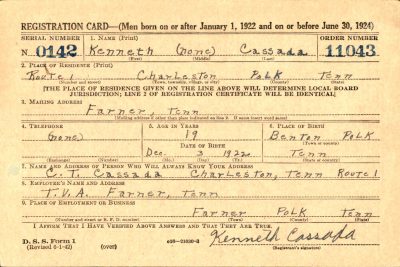 REGISTRATION CARD—(Men born on or after January 1, 1922 and on or before June 30, 1924)
SERIAL NUMBER 1. NAME (Print) ORDER NUMBER
N 0142 Kenneth (none) Cassada 11043
(First) (Middle) (Last)
2. PLACE OF RESIDENCE (Print)
Route 1 Charleston Polk Tenn
(Number and street) (Town, township, village, or city) (County) (State)
[THE PLACE OF RESIDENCE GIVEN ON THE LINE ABOVE WILL DETERMINE LOCAL BOARD
JURISDICTION; LINE 2 OF REGISTRATION CERTIFICATE WILL BE IDENTICAL]
3. MAILING ADDRESS
Farner, Tenn
(Mailing address if other than place indicated on line 2. If same insert word same)
4. TELEPHONE 5. AGE IN YEARS 6. PLACE OF BIRTH
(none) 19 Benton Polk
DATE OF BIRTH (Town or county)
Dec. 3 1922 Tenn
(Exchange) (Number) (Mo.) (Day) (Yr.) (State or country)
7. NAME AND ADDRESS OF PERSON WHO WILL ALWAYS KNOW YOUR ADDRESS
C. T. Cassada Charleston, Tenn Route 1
8. EMPLOYER'S NAME AND ADDRESS
T.V.A. Farner, Tenn
9. PLACE OF EMPLOYMENT OR BUSINESS
Farner Polk Tenn
(Number and street or R. F. D. number) (Town) (County) (State)
I AFFIRM THAT I HAVE VERIFIED ABOVE ANSWERS AND THAT THEY ARE TRUE.
D. S. S. Form 1
(Revised 6-1-42) (over) Kenneth Cassada
(Registrant's signature)